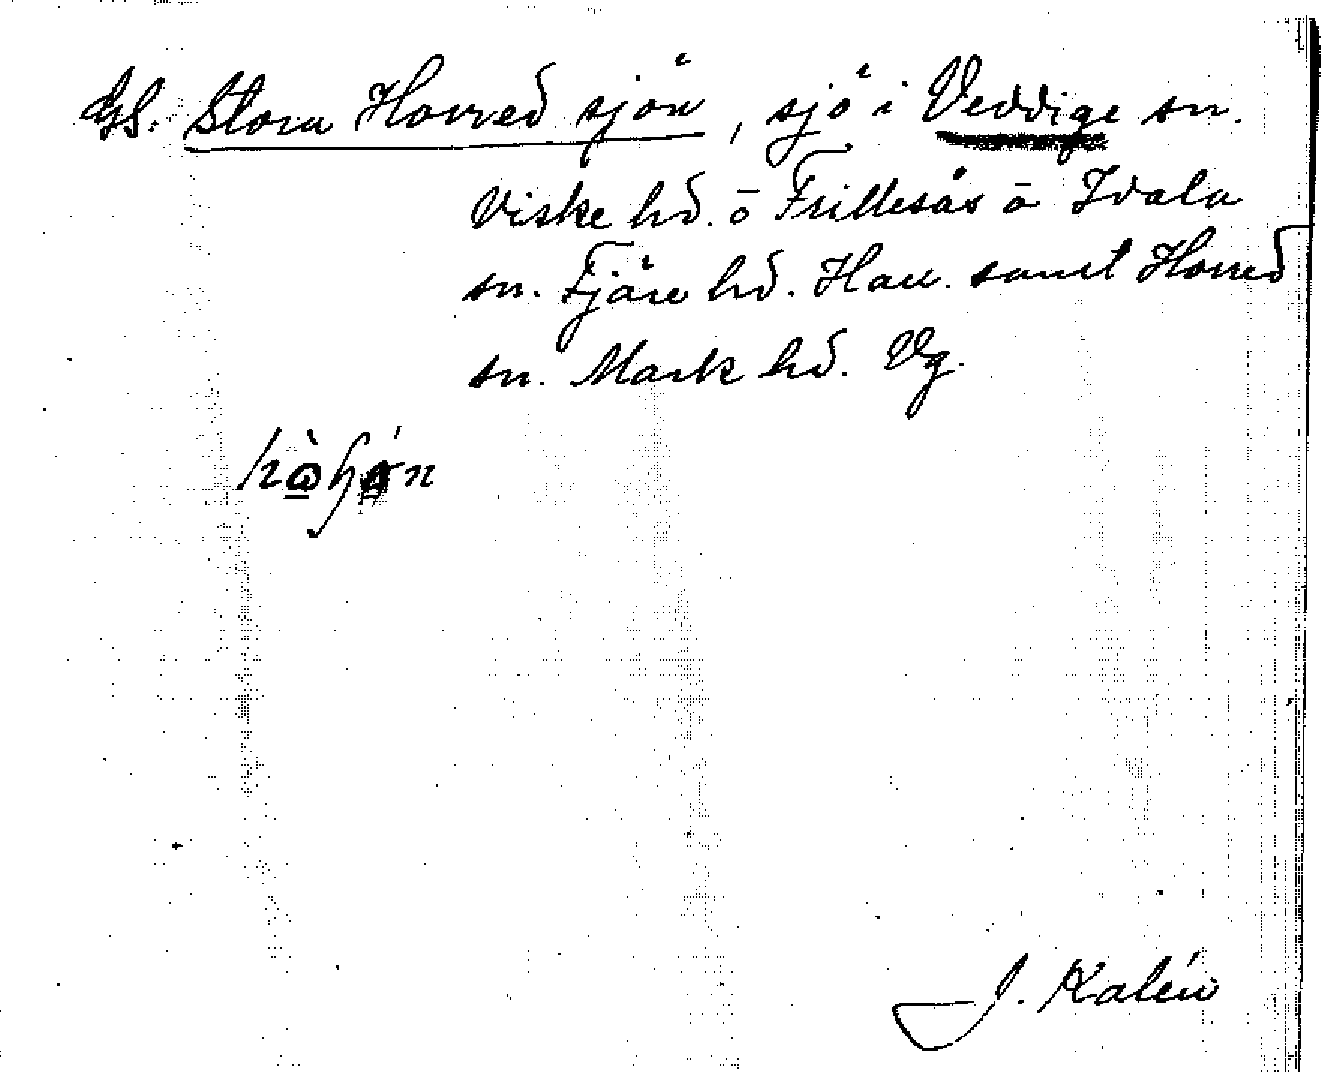 GS. Stora Horred sjön, sjö i Veddige sn.
Viske hd. ō Frillesås ō Idala
sn. Fjäre hd. Hall. samt Horred
sn. Mark hd. Vg.
J. Kalén